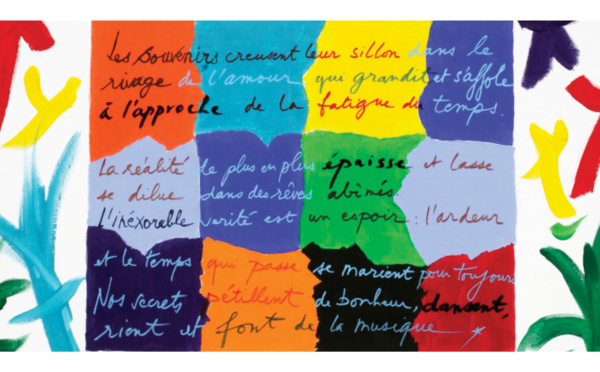 Les souvenirs creusent leur sillon dans le
rivage de l'amour qui grandit et s'affole
à l'approche de la fatigue du temps.
La réalité de plus en plus épaisse et lasse
se dilue dans des rêves abîmés.
l'inéxorable vérité est un espoir : l'ardeur
et le temps qui passe se marient pour toujours
Nos secrets pétillent de bonheur, dansent,
rient et font de la musique